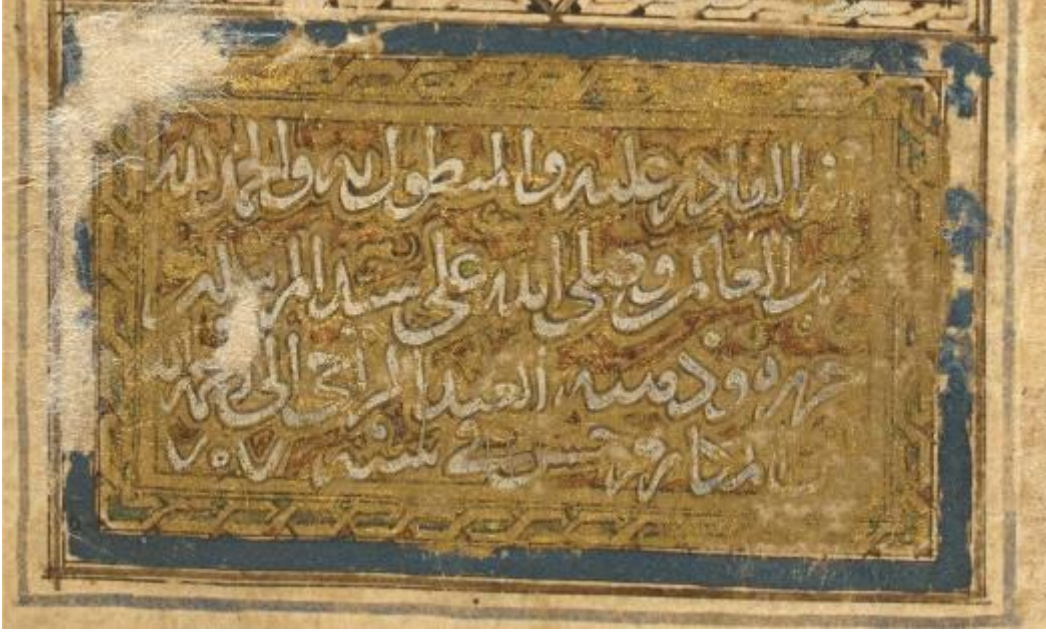 القادر عليه والمتطول به والحمد لله
رب العالمين وصلى الله على سيد المرسلين
وذهبه العبد الراجي الى رحمة الله
حسن في سنة ٧٠٧